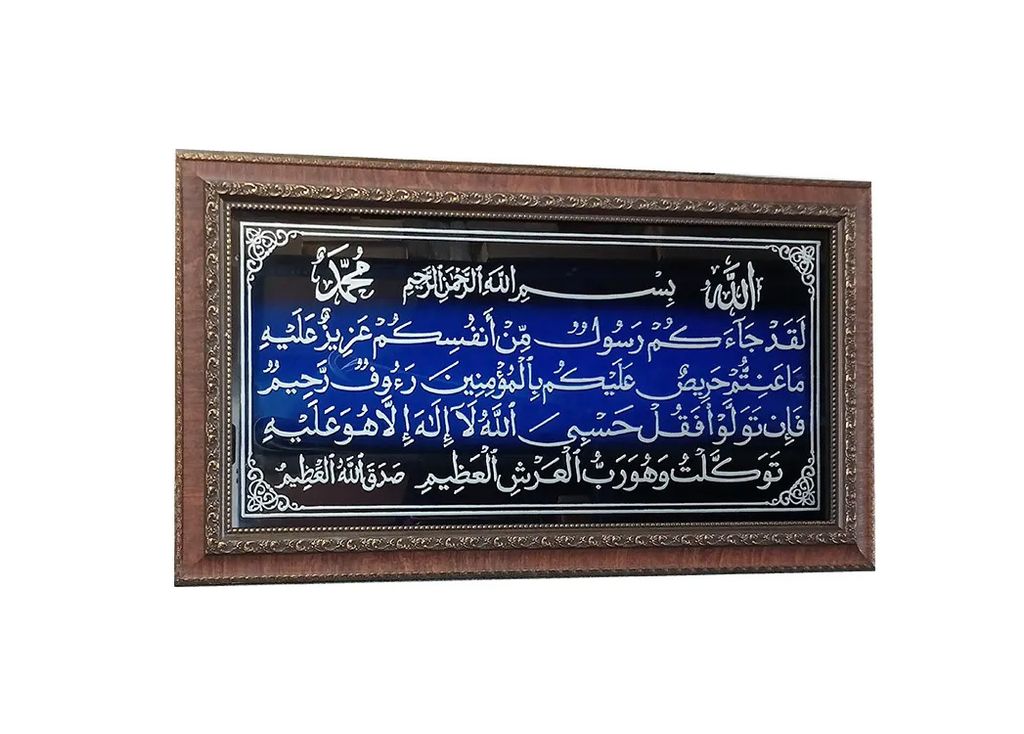 الله بسم الله الرحمن الرحيم محمد
لَقَدْ جَآءَكُمْ رَسُولٌ مِّنْ أَنفُسِكُمْ عَزِيزٌ عَلَيْهِ
مَا عَنِتُّمْ حَرِيصٌ عَلَيْكُم بِالْمُؤْمِنِينَ رَءُوفٌ رَّحِيمٌ
فَإِن تَوَلَّوْا فَقُلْ حَسْبِيَ اللَّهُ لَا إِلَٰهَ إِلَّا هُوَ عَلَيْهِ
تَوَكَّلْتُ وَهُوَ رَبُّ الْعَرْشِ الْعَظِيمِ صَدَقَ اللَّهُ الْعَظِيمُ